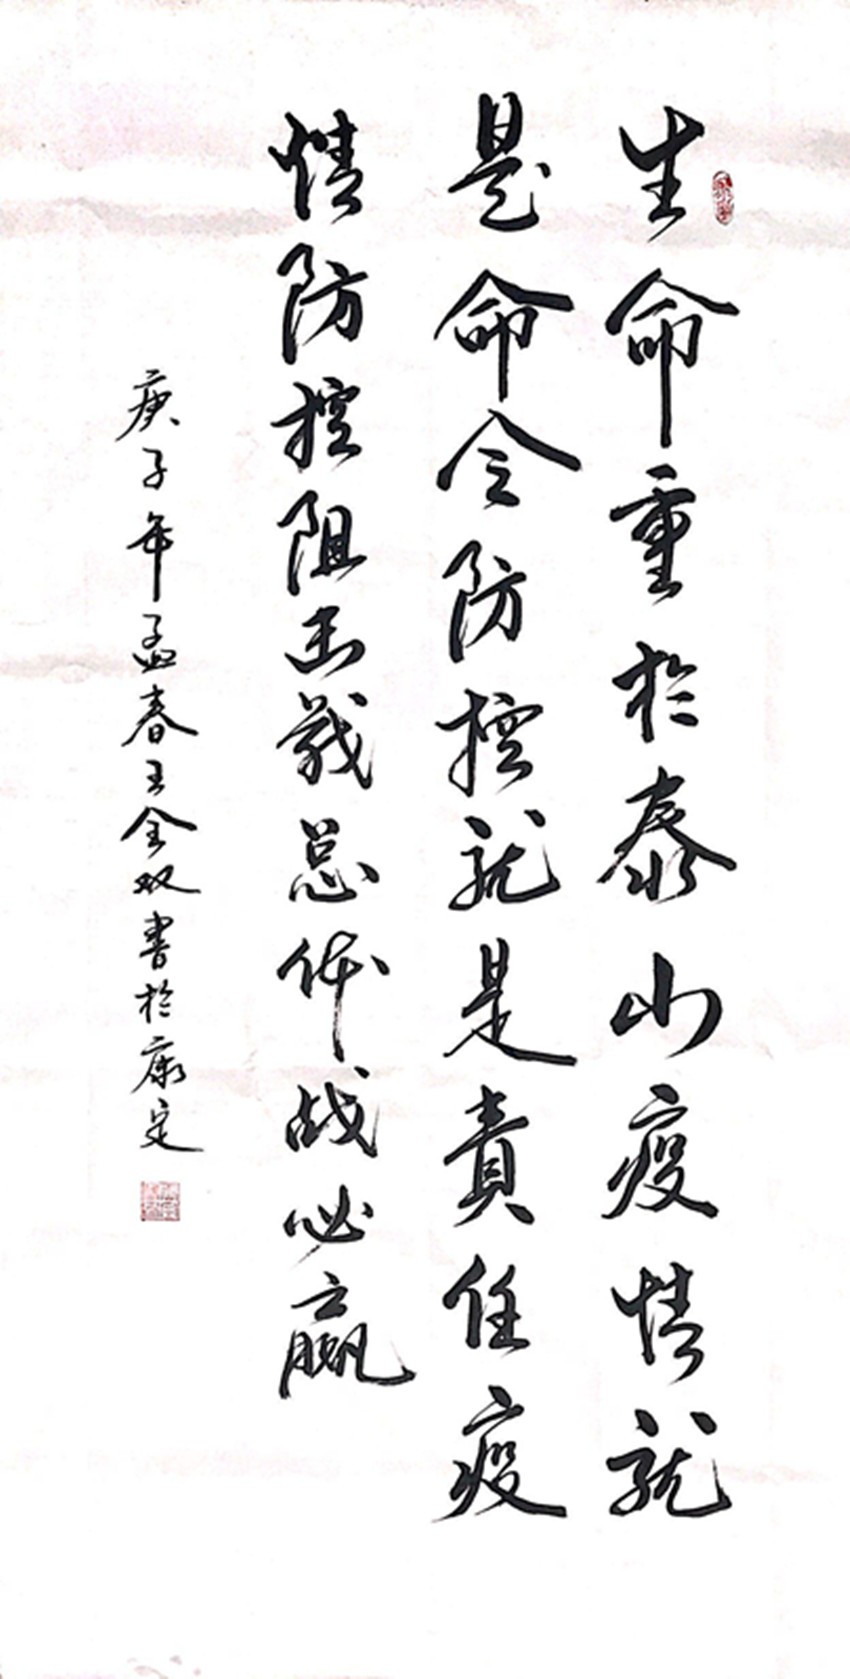 生命重於泰山疫情就
是命令防控就是責任疫
情防控阻击战总体战必赢
庚子年孟春王全双書於康定